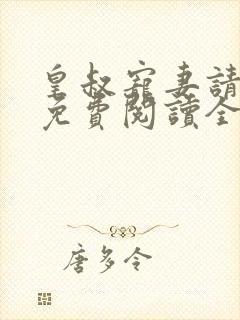 皇叔寵妻請
免費閱讀全
唐多令